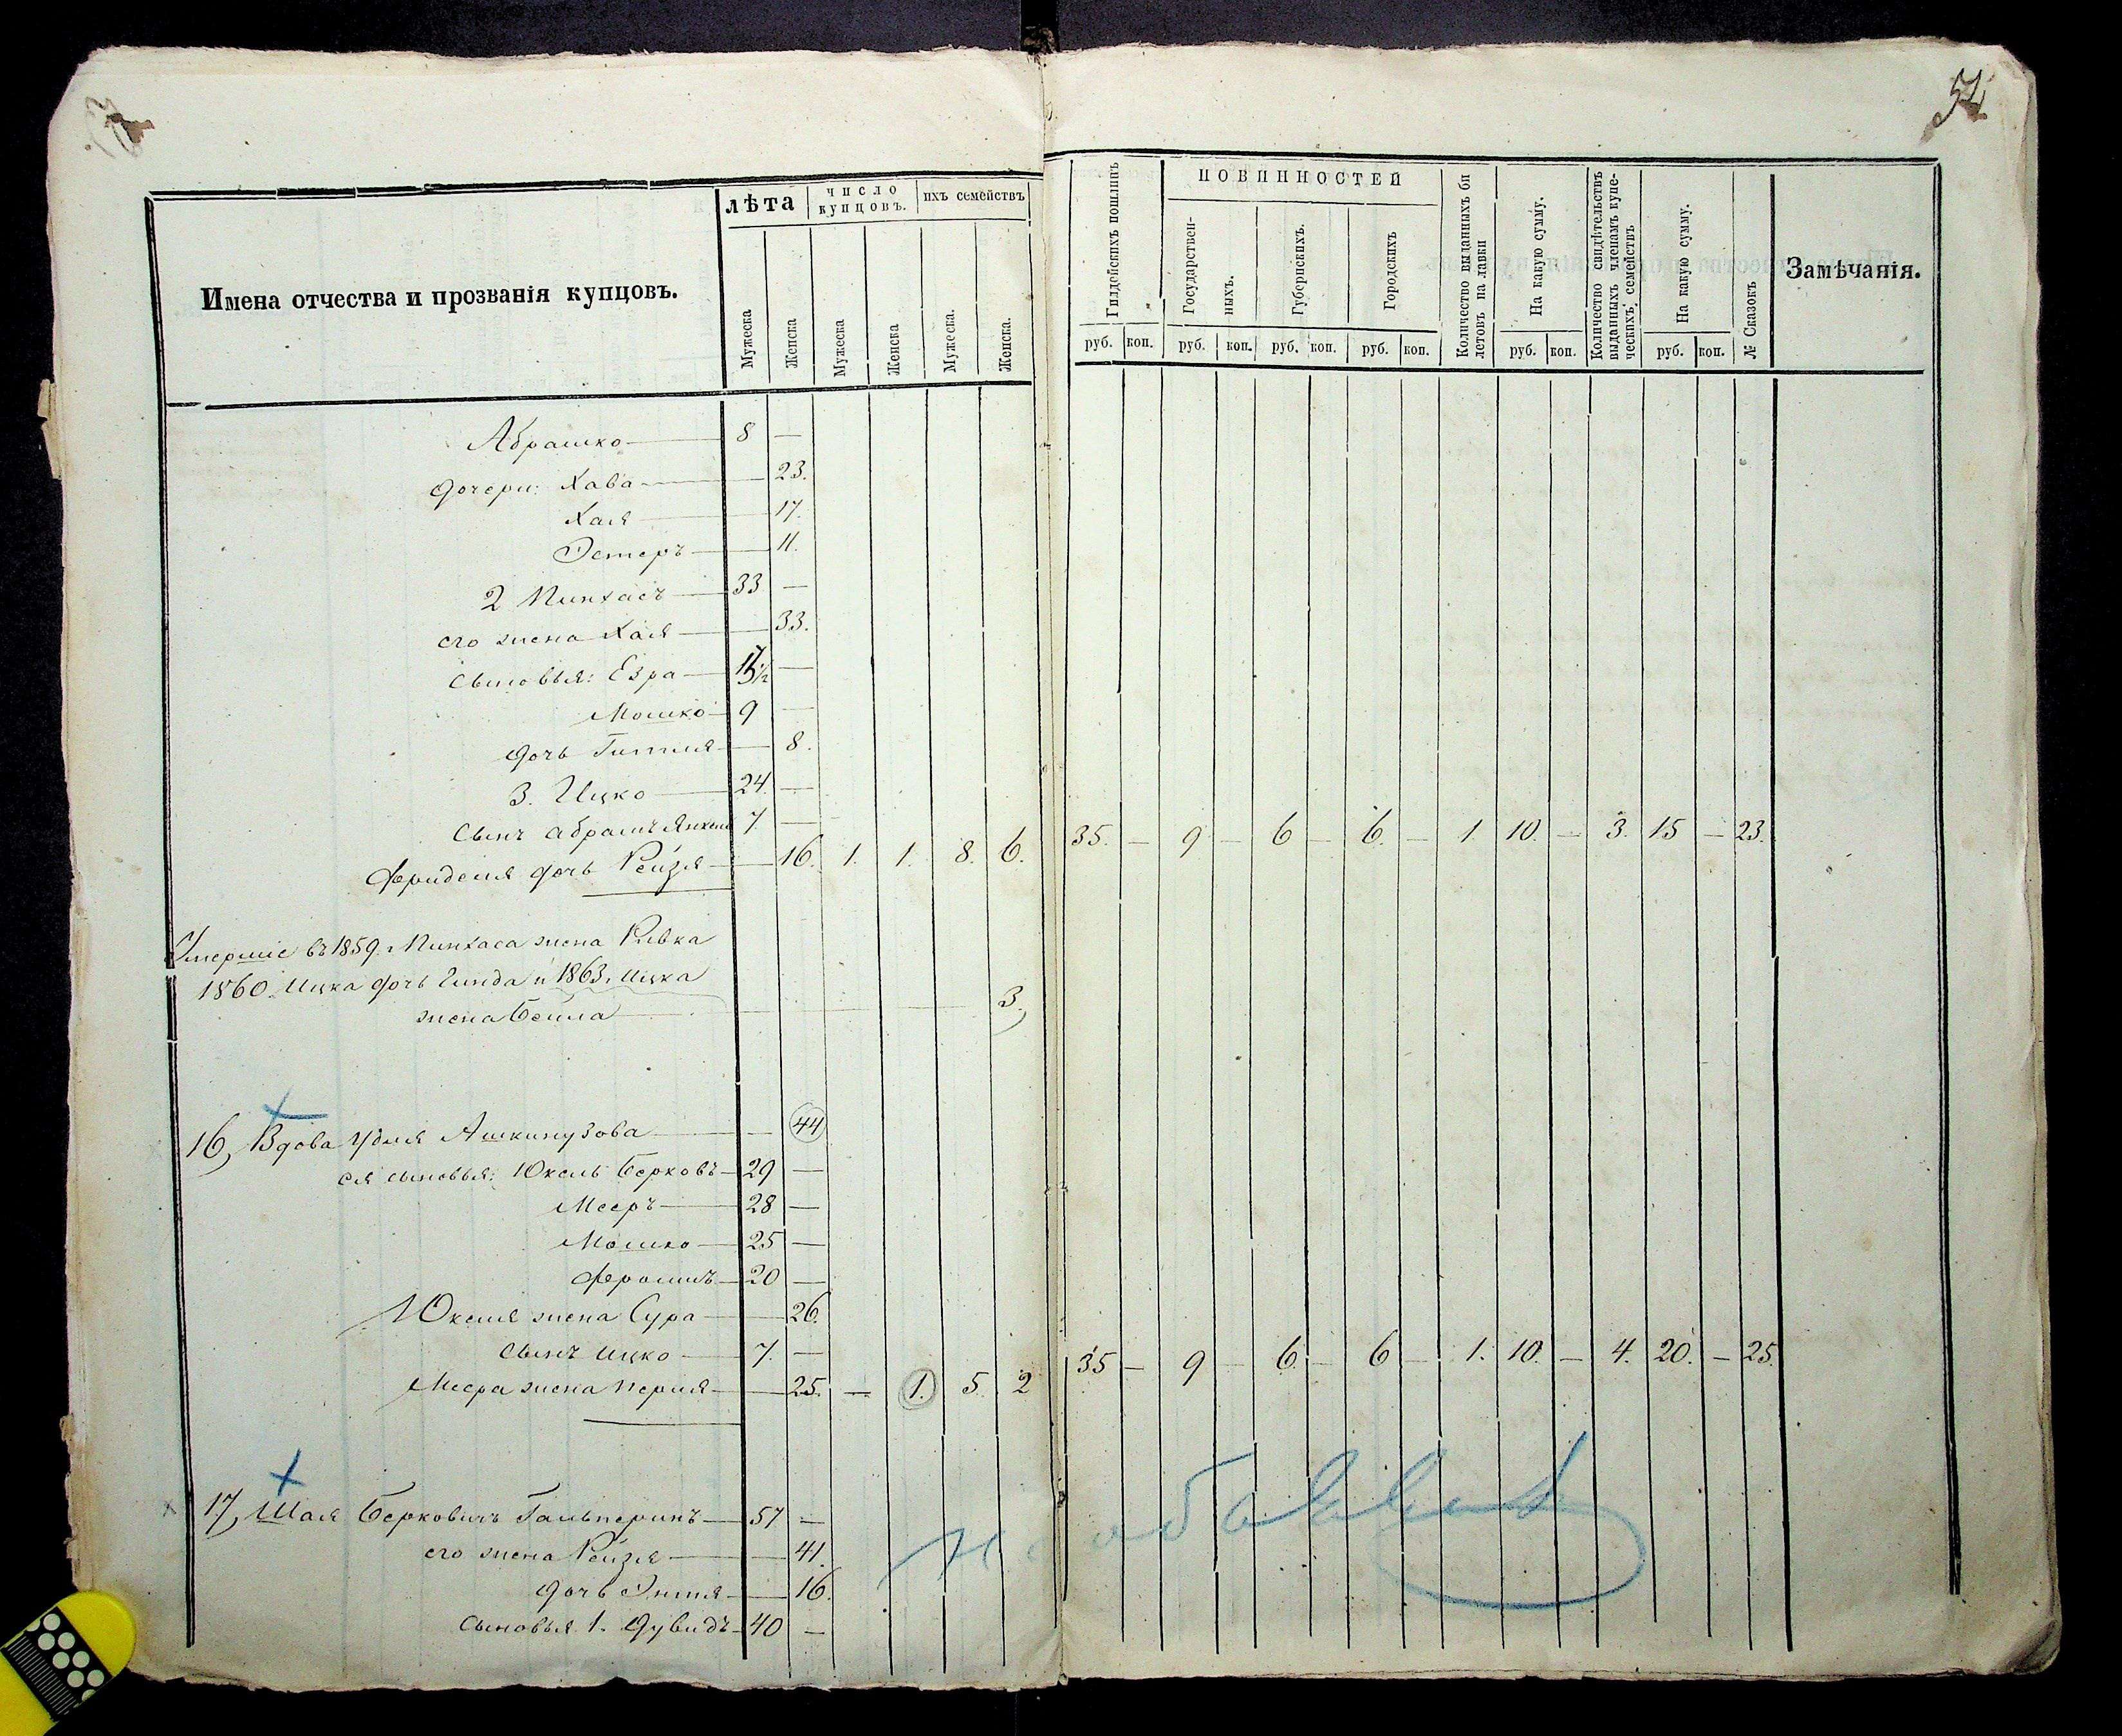 54
Имена отчества и прозванія купцовъ.
лѣта
число купцовъ.
ихъ семействъ
Мужеска
Женска
Мужеска
Женска
Мужеска.
Женска.
Гилдейскихъ пошлинъ
ПОВИННОСТЕЙ
Государственныхъ.
Губернскихъ.
Городскихъ
Количество выданныхъ билетовъ на лавки
На какую сумму.
Количество свидѣтельствъ выданныхъ членамъ купеческихъ семействъ
На какую сумму.
№ Сказокъ
Замѣчанія.
руб. коп. руб. коп. руб. коп. руб. коп. руб. коп. руб. коп.
Абрашко — 8 —
дочери: Хава — 23.
Хая — 17.
Эстеръ — 11.
2 Пинхасъ — 33 —
его жена Хая — 33.
сыновья: Езра — —
Мошко — 9 —
дочь Гитля — 8.
3. Ицко — 24. —
Сынъ Абрамъ Янкель 7. —
дочь Рейзя — 16. 1. 1. 8. 6. 35. — 9 — 6 — 6. — 1. 10. — 3. 15 — 23.
Умершіе въ 1859. Пинхаса жена Ривка
1860. Ицка дочь Гинда и 1863. Ицка
жена Бейла — 3.
16, Вдова Удля Ашкинузова — 44
ея сыновья: Юкель Берковъ — 29 —
Мееръ — 28 —
Мошко — 25 —
Фроимъ — 20 —
Юкеля жена Сура — 26.
Сынъ Ицко — 7. —
Меера жена Перля — 25. — 1. 5. 2 35 — 9 — 6. — 6 — 1. 10. — 4. 20. — 25.
17, Шая Берковичъ Гальперинъ — 57 —
его жена Рейзя — 41.
дочь Этля — 16.
Сыновья 1. Дувидъ — 40 —